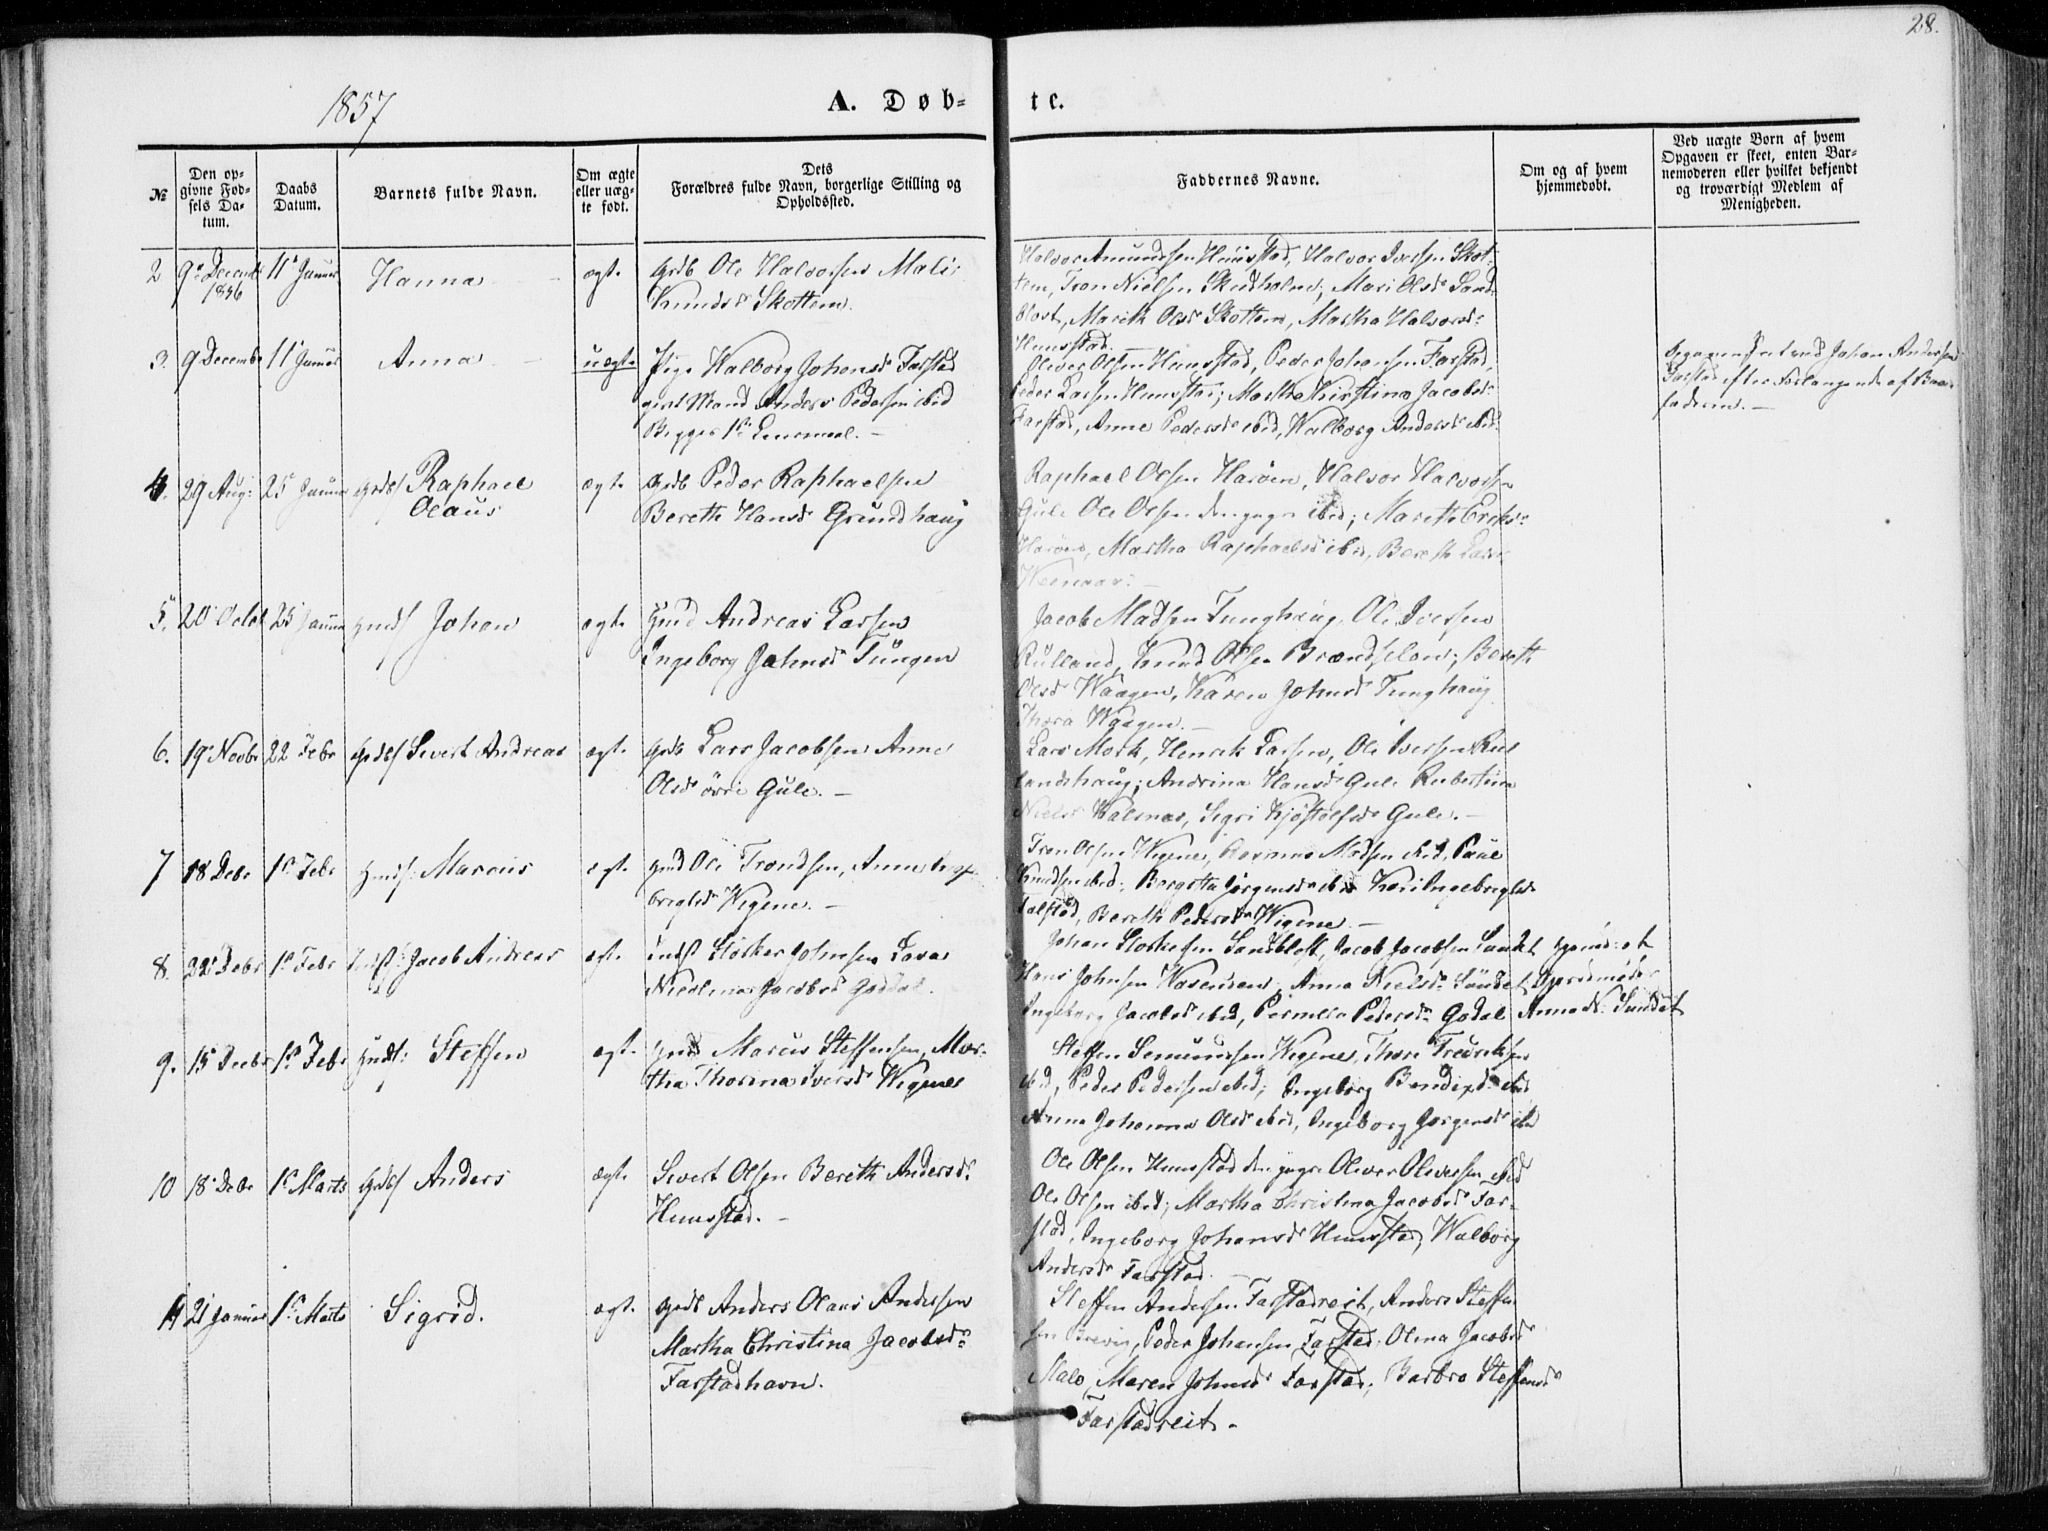 28.
1857
A. Døb-
te.
№
Den op-
givne Fød-
sels Da-
tum.
Daabs
Datum.
Barnets fulde Navn.
Om ægte
eller uæg-
te født.
Dets
Forældres fulde Navn, borgerlige Stilling og
Opholdssted.
Faddernes Navne.
Om og af hvem
hjemmedøbt.
Ved uægte Børn af hvem
Opgaven er skeet, enten Bar-
nemoderen eller hvilket bekjendt
og troværdigt Medlem af
Menigheden.
2 9de Decembr 11te Januar Hanna ægte Grdb Ole Halvorsen Mali
1856
Knudsdr Skottem.
Halvor Amundsen Hunstad, Halvor Iversen Skot-
tem, Tron Nielsen Skudholm, Mari Olsdr Sand-
blost, Marith Olsdr Skottem, Martha Halvorsdr
Hunstad.
3. 9 Decembr 11te Januar Anna uægte Pige Walborg Johansdr Farstad
givt Mand Anders Pedersen ibid
Begges 1ste Leiermaal.
Oliver Olsen Hunstad, Peder Johansen Farstad,
Peder Larsen Hunstad; Martha Kirstina Jacobsdr
Farstad, Anne Pedersdr ibid, Walborg Andersdr ibid
Johan Andersen
Farstad efter Forlangende af Bar-
faderen.
4. 29 Aug: 25 Januar Grdb Raphael
Olaus
ægte Grdb Peder Raphaelsen
Bereth Hansdr Grundhaug
Raphael Olsen Harøen, Halvor Halvorsen
Gule Ole Olsen den yngre ibid; Marith Eriks-
Harøen, Martha Raphaelsdr ibid, Bereth Larsdr
5. 20 Octob 25 Januar Hmds Johan ægte Hmd Andreas Larsen
Ingeborg Johnsdr Tungen
Jacob Madsen Tunghaug, Ole Iversen
Rulland, Knud Olsen Brændsløw; Bereth
Olsdr Waagen, Karen Johnsdr Tunghaug
Thora Waagen.
6. 19 Novbr 22 Febr Grdbs Sivert Andreas ægte Grdb Lars Jacobsen Anne
Olsdr øvre Gule.
Lars Mork, Henrik Larsen, Ole Iversen Rul-
landshaug; Andrina Hansdr Gule Rubertina
Nielsdr Malmas, Sigri Kjøstolfsdr Gule.
7 18 Debr 1ste Febr Hmds: Marcus ægte Hmd Ole Trondsen, Anne Inge-
brigtsdr Wigene.
Tron Olsen Wigenes, Rasmus Madsen ibid, Paul
Knudsen ibid; Bergitha Jørgensdr ibid Kari Ingebrigtsdr
Talstad, Bereth Pedersdr Wigene.
8. 22 Debr 1ste Febr Jacob Andreas ægt. Indst Størker Johnsen Lava
Nicolina Jacobsdr Godal.
Johan Størkersen Sandblost, Jacob Jacobsen Sundet
Hans Johnsen Wasenden, Anna Nielsdr Sundet
Ingeborg Jacobsdr ibid, Pernella Pedersdr Godal
Hjemd: af
Gjordmoder
Anna N: Sundet
9. 15 Decbr 1ste Febr Hmds: Steffen ægt. Hmd Marcus Steffensen, Mar-
tha Thorina Iversdr Wigenes
Steffen Semundsen Wigenes, Thore Fredriksen
ibid, Peder Pedersen ibid; Ingeborg Bendixdr ibid
Anna Johanna Olsdr ibid, Ingeborg Jørgensdr ibid
10 18 Debr 1ste Marts Grdbs Anders ægte Sivert Olsen Bereth Andersdr
Hunstad.
Ole Olsen Hunstad den yngre Oliver Oliversen ibid
Ole Olsen ibid; Martha Christina Jacobsdr Far-
stad, Ingeborg Johansdr Hunstad, Walborg
Andersdr Farstad.
11 21 Januar 1ste Marts Sigrid. ægt. Grdb Anders Olaus Andersen
Martha Christina Jacobsdr
Farstadhavn.
Steffen Andersen Farstadreit, Anders Steffen-
sen Brevig, Peder Johansen Farstad; Olina Jacobsdr
Male, Maren Johnsdr Farstad; Barbro Steffensdr
Farstadreit.